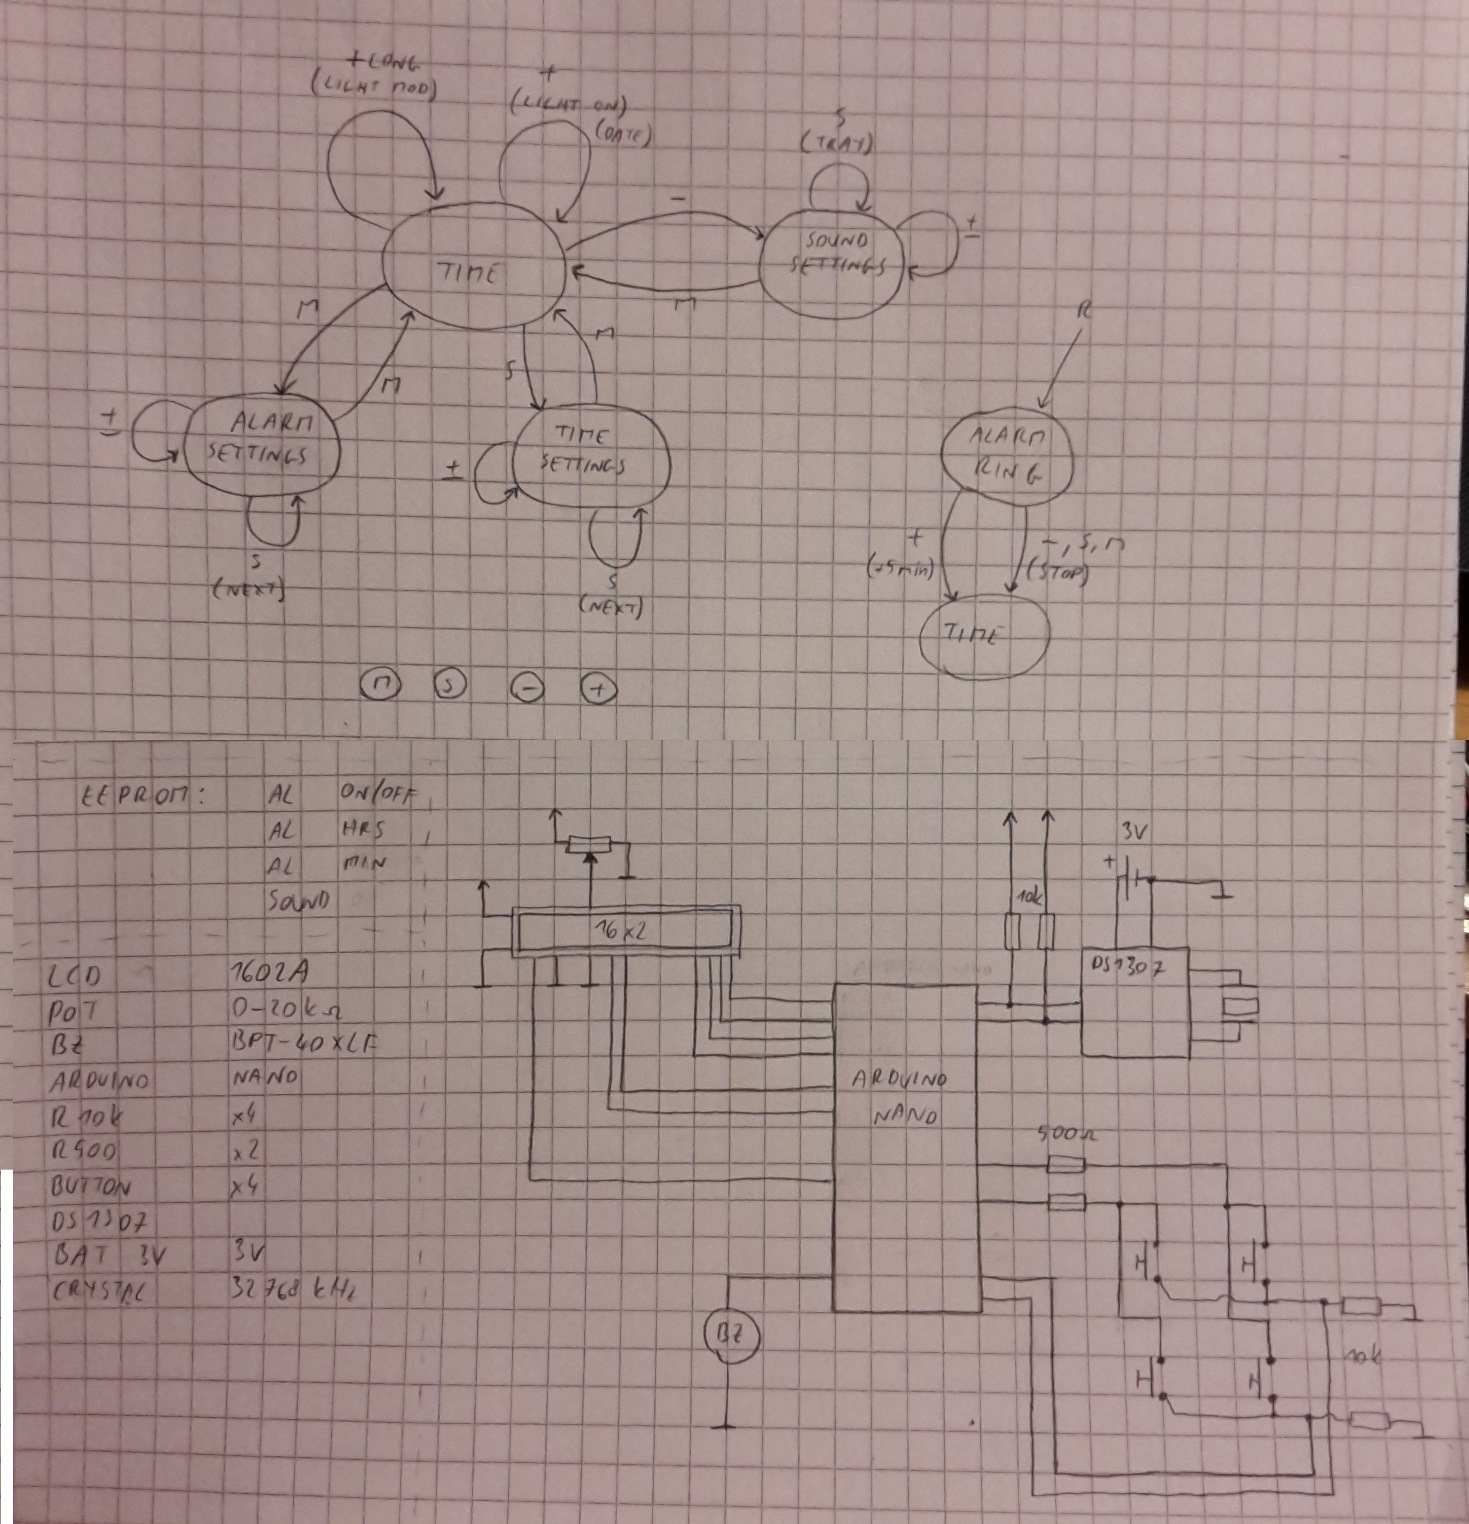 + LONG
(LIGHT MOD)
+
(LIGHT ON)
(DATE)
S
(TRAY)
-
±
SOUND
SETTINGS
TIME
M
M
R
M
M
S
±
ALARM
SETTINGS
TIME
SETTINGS
±
ALARM
RING
S
(NEXT)
S
(NEXT)
+
(+5min)
-, S, M
(STOP)
TIME
M S - +
EEPROM: AL ON/OFF
AL HRS
AL MIN
SOUND
3V
+
10k
16x2
DS1307
LCD 1602A
POT 0-20kΩ
BZ BPT-40XLF
ARDUINO NANO
R 10k x4
R500 x2
BUTTON x4
DS1307
BAT 3V 3V
CRYSTAL 32768 kHz
ARDUINO
NANO
500Ω
BZ
10k